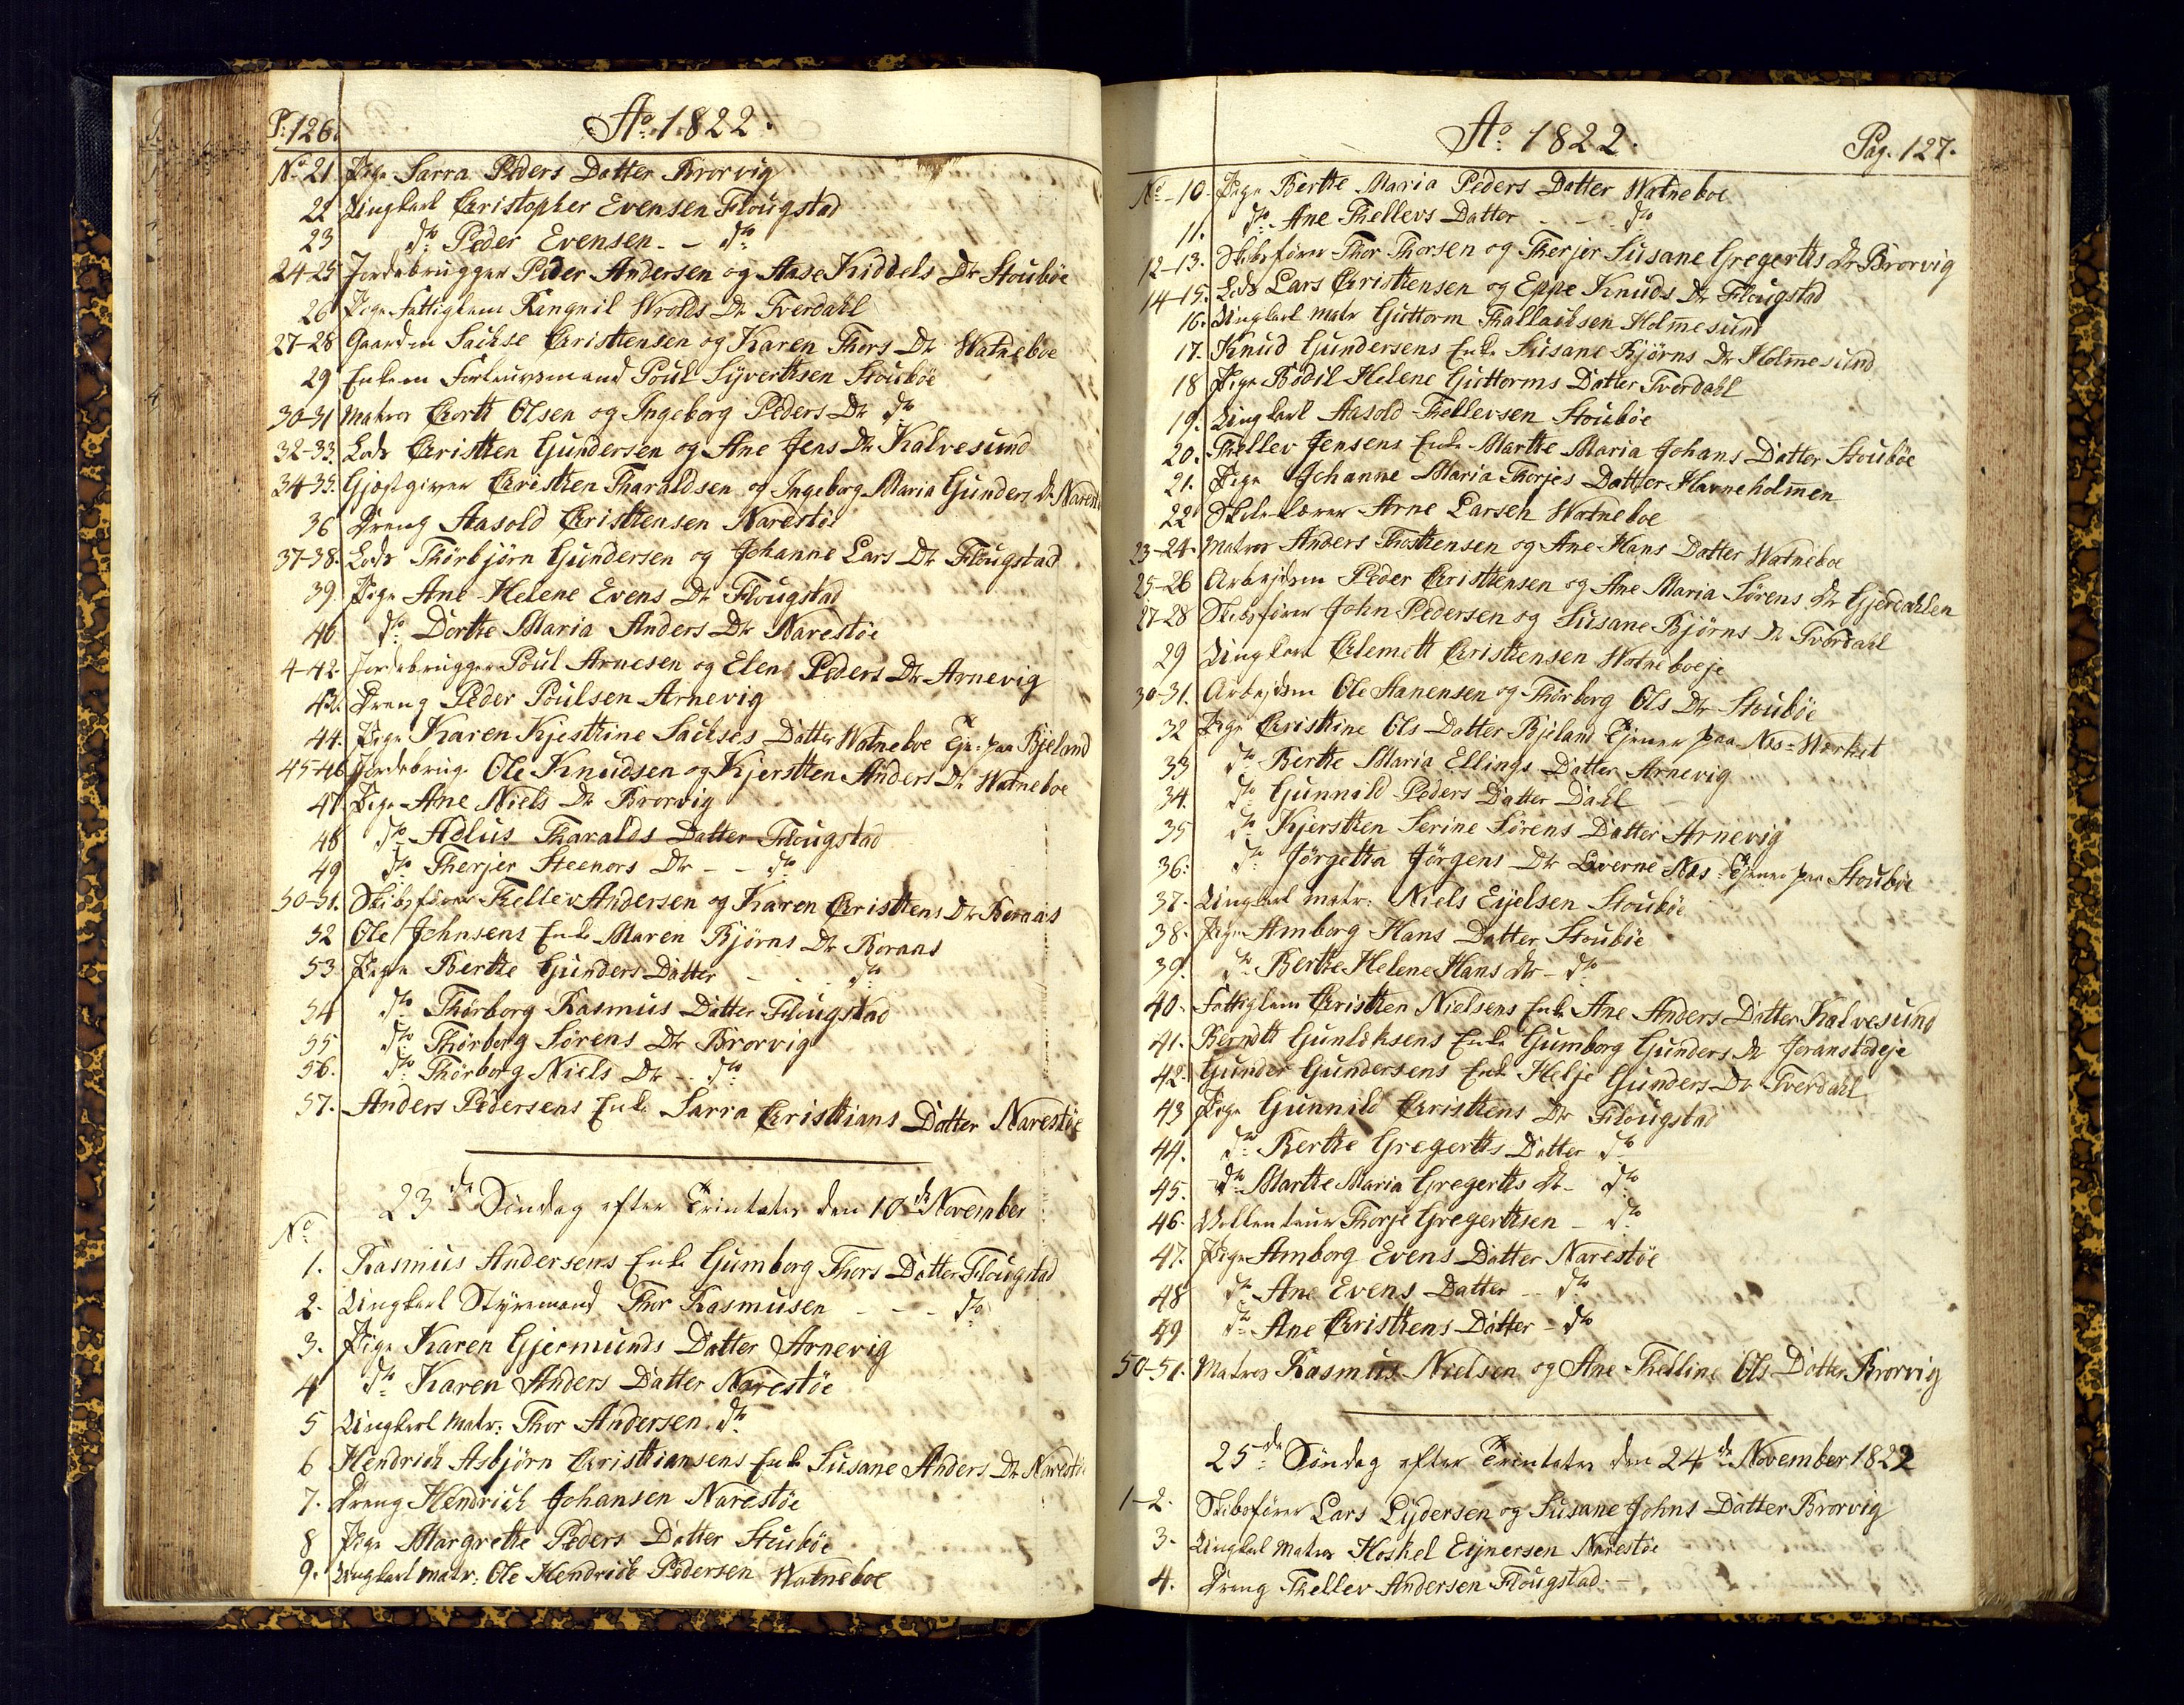 P: 126.
Ao 1822.
No 21 Pige Sarra Peders Datter Brorvig
22 Ungkarl Christopher Evensen Flougstad
23 do Peder Evensen - - do
24-25 Jordebrugger Peder Andersen og Aase Kiddels Dr Stoubøe
26 Pige Fattiglem Rangnil Wrolds Dr Tverdahl
27-28 Gaardm Sackse Christensen og Karen Thors Dr Watneboe
29 Enkem Forleuvsmand Poul Syvertsen Stoubøe
30-31 Matros Corth Olsen og Ingeborg Peders Dr do
32-33. Lods Christen Gundersen og Ane Jens Dr Kalvesund
34-35. Gjæstgiver Christen Tharaldsen og Ingeborg Maria Gunders Dr Narest
36 Dreng Aasold Christensen Narestøe
37-38. Lods Thorbjørn Gundersen og Johanne Lars Dr Flougstad
39. Pige Ane Helene Evens Dr Flougstad
40. do Dorthe Maria Anders Dr Narestøe
4-42. Jordebrugger Poul Arnesen og Elen Peders Dr Arnevig
43. Dreng Peder Poulsen Arnevig
44. Pige Karen Kjestine Sackses Datter Watneboe Tje: paa Bjeland
45-46 Jordebrug: Ole Knudsen og Kjersten Anders Dr Watneboe
47. Pige Ane Niels Dr Brorvig
48 do Adlus Tharalds Datter Flougstad
49 do Therjer Steenors Dr - - do
50-51. Skibsfører Thellev Andersen og Karen Christens Dr Boraas
52 Ole Johnsens Enke Maren Bjørns Dr Boraas
53. Pige Berthe Gunders Datter - - - do
54 do Thorborg Rasmus Datter Flougstad
55 do Thorborg Sørens Dr Brorvig
56. do Thorborg Niels Dr - do
57. Anders Pedersens Enke Sarra Christians Datter Narestøe
23de Søndag efter Trinitatis den 10de November
No
1. Rasmus Andersens Enke Gumborg Thors Datter Flougstad
2. Ungkarl Styremand Thor Rasmusen - - - do
3. Pige Karen Gjermunds Datter Arnevig
4 do Karen Anders Datter Narestøe
5 Ungkarl Matr: Thor Andersen do
6 Hendrich Asbjørn Christiansens Enke Susane Anders Dr Narestøe
7. Dreng Hendrich Johansen Narestøe
8 Pige Margrethe Peders Datter Stoubøe
9. Ungkarl Matr: Ole Hendrich Pedersen Watneboe
Ao 1822.
Pag. 127.
No 10. Pige Berthe Maria Peders Datter Watneboe
11. do Ane Thellevs Datter - - do
12-13. Skibsfører Thor Thorsen og Therjer Susane Gregerths Dr Brorvig
14-15. Lods Lars Christensen og Eppe Knuds Dr Flougstad
16. Ungkarl Matr Guttorm Thallacksen Holmesund
17. Knud Gundersens Enke Susane Bjørns Dr Holmesund
18 Pige Bodil Helene Guttorms Datter Tverdahl
19. Ungkarl Aasold Thellevsen Stoubøe
20. Thellev Jensens Enke Marthe Maria Johans Datter Stoubøe
21. Pige Johanne Maria Thorjes Datter Havneholmen
22 Skole-Lærer Arne Larsen Watneboe
23-24. Matros Anders Thostensen og Ane Hans Datter Watneboe
25-26 Arbejdsm Peder Christensen og Ane Maria Sørens Dr Gjerdahlen
27-28 Skibsfører John Pedersen og Susane Bjørns Dr Tverdahl
29 Ungkarl Clemett Christensen Watneboeje
30-31. Arbejdsm Ole Hanensen og Thorborg Ols Dr Stoubøe
32 Pige Christine Ols Datter Bjeland Tjener paa Nes-Værket
33 do Berthe Maria Ellings Datter Arnevig
34. do Gunnild Peders Datter Dahl
35 do Kjersten Serine Sørens Datter Arnevig
36: do Jørgetta Jørgens Dr Qverne Nes Tjener paa Stoubøe
37. Ungkarl Matr: Niels Eyelsen Stoubøe
38. Pige Amborg Hans Datter Stoubøe
39. do Berthe Helene Hans Dr - do
40. Fattiglem Christen Nielsens Enke Ane Anders Datter Kalvesund
41. Berndt Gunleksens Enke Gumborg Gunders Dr Joranstadeje
42. Gunder Gundersens Enke Helje Gunders Dr Tverdahl
43 Pige Gunnild Christens Dr Flougstad
44. do Berthe Gregerths Datter do
45. do Marthe Maria Gregerths Dr - do
46. Vollenteur Thorje Gregerthsen - do
47. Pige Amborg Evens Datter Narestøe
48 do Ane Evens Datter - do
49 do Ane Christens Datter - do
50-51. Matros Rasmus Nielsen og Ane Thelline Ols Datter Brorvig
25de Søndag efter Trinitatis den 24de November 1822
1-2. Skibsfører Lars Lydersen og Susane Johns Datter Brorvig
3. Ungkarl Matros Hoskel Eynersen Narestøe
4. Dreng Thellev Andersen Flougstad -